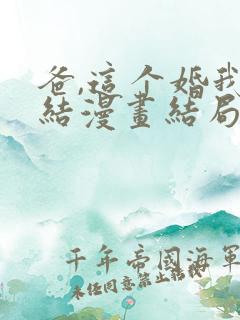 爸,這个婚我
結漫畫結局
千年帝國海軍
未经同意禁止转载